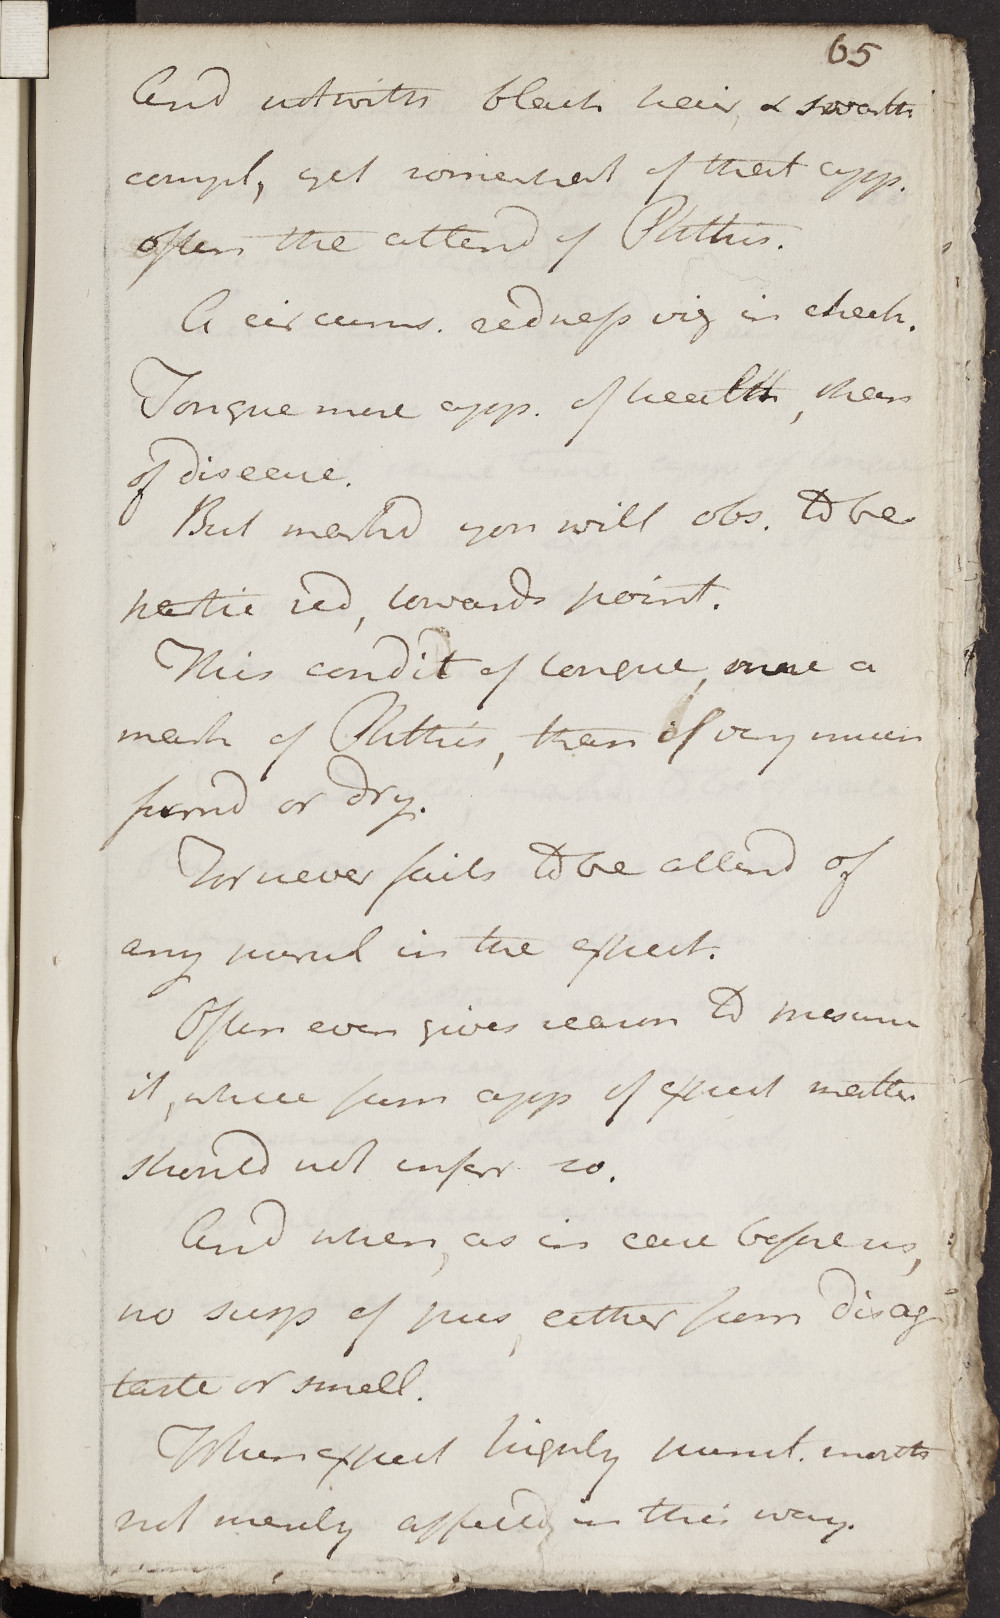 65
And notwith black hair, & swarth
compl, yet somewhat of that app.
often the attend of Phthis.
A circums. redness vig in cheek.
Tongue more app. of health, than
of disease.
But mark'd you will obs. to be
hectic red, towards point.
This condit of tongue, more a
mark of Phthis, than if very much
furrd or dry.
For never fails to be attend of
any purul in the expect.
Often even gives reason to presum
it, where from app of expect matter
should not infer so.
And when, as in case before us,
no susp of pus, either from disag
taste or smell.
When expect highly purul. mouth
not merely affected in this way.